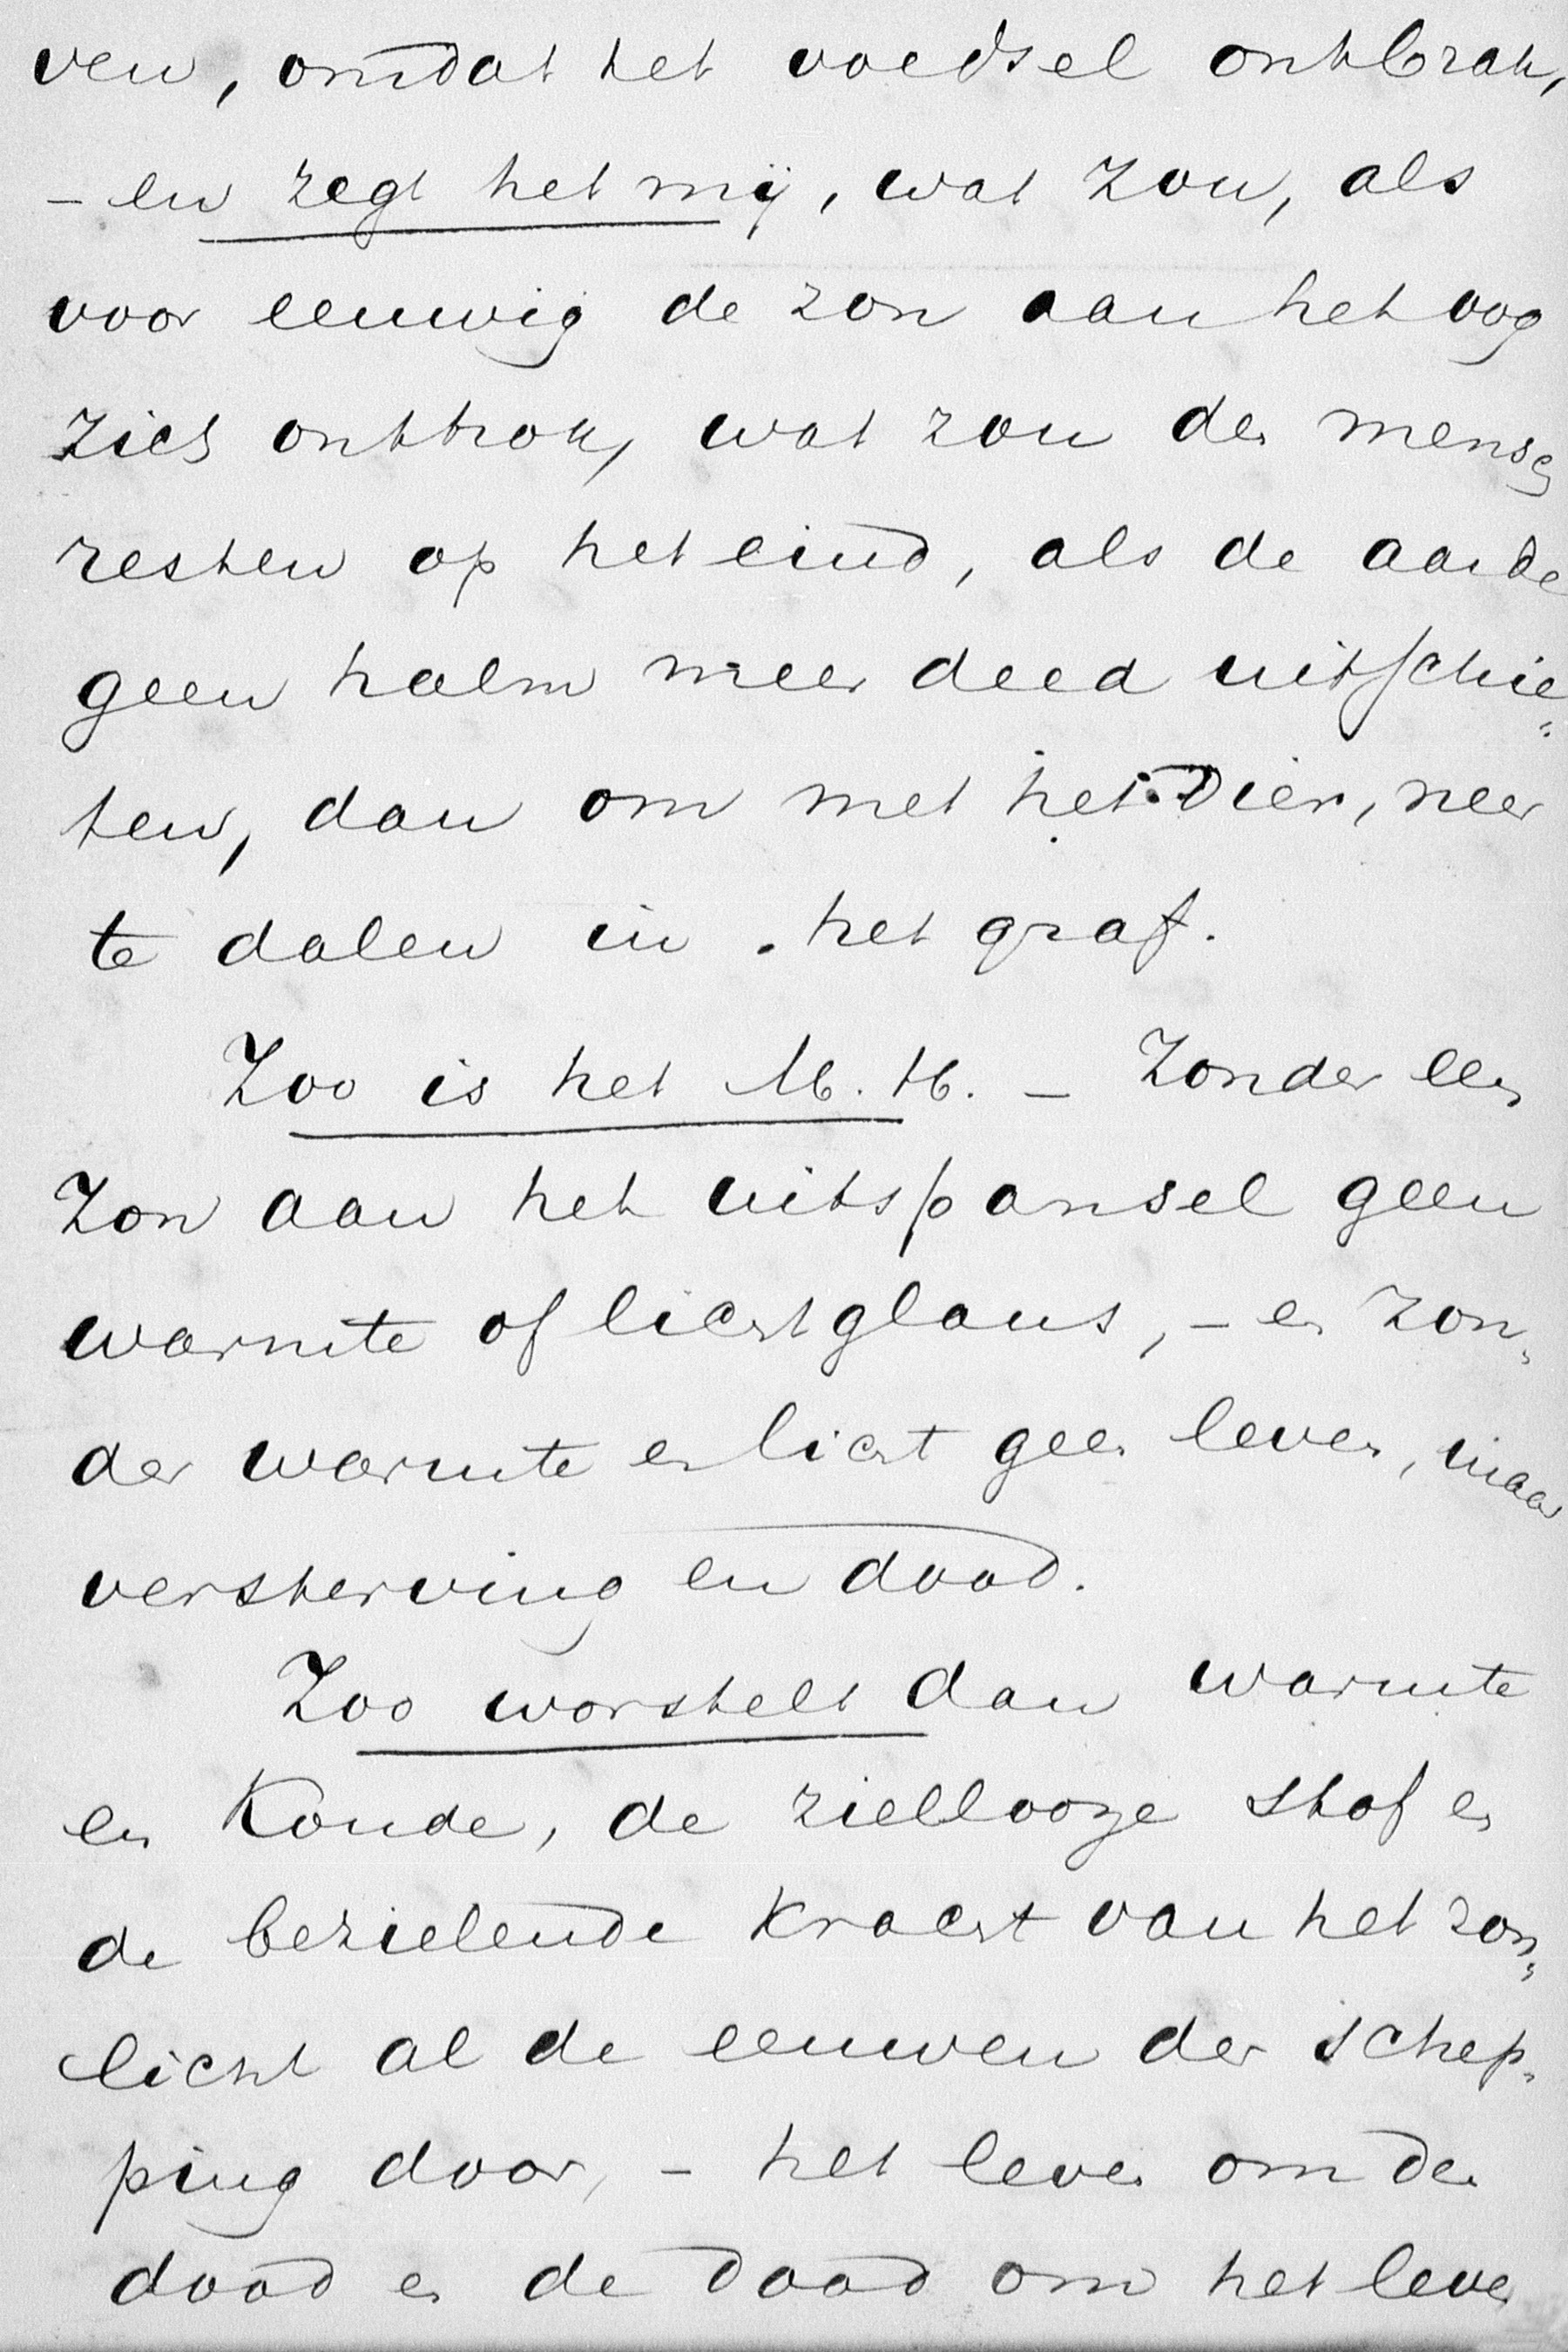 ven, omdat het voedsel ontbrak,
- en zegt het mij, wat zou, als
voor eeuwig de zon aan het oog
zich onttrok, wat zou den mensch
resten op het eind, als de aarde
geen halm meer deed uitschie„
ten, dan om met het dier, neer
te dalen in het graf.
Zoo is het M. H. - Zonder een
zon aan het uitspansel geen
warmte of lichtglans, - en zon„
der warmte en licht geen leven, maar
versterving en dood.
Zoo worstelt dan warmte
en koude, de ziellooze stof en
de bezielende kracht van het zon„
licht al de eeuwen der schep„
ping door, - het leven om den
dood en de dood om het leven